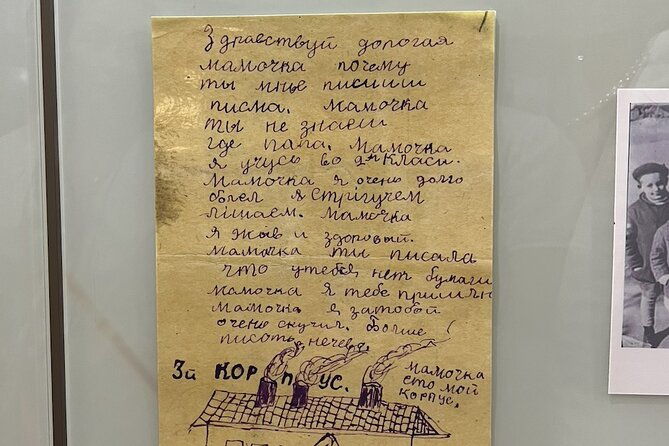 Здравствуй дорогая
мамочка почему
ты мнье пишиш
писма. мамочка
ты не знаеш
где папа. Мамочка
я учусь во 2м класи.
Мамочка я очень долго
болел я Стрігучем
лішаем. Мамочка
я жив и здоровый.
мамочка ты писала
что утебя нет бумаги
мамочка я тебе пришлю
мамочка я затобой
очень скучил. больше
писать нечево
3й КОРПУС.
мамочка
ето мой
корпус.